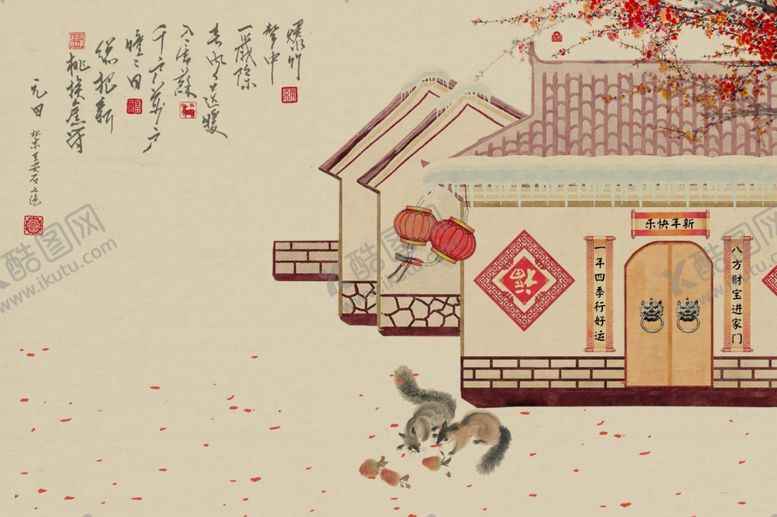 爆竹
聲中
一歲除
春风送暖
入屠蘇
千门萬户
曈曈日
總把新
桃換舊符
元日 北宋 王安石
新年快乐
八方财宝进家门
一年四季行好运
福
酷图网
www.ikutu.com